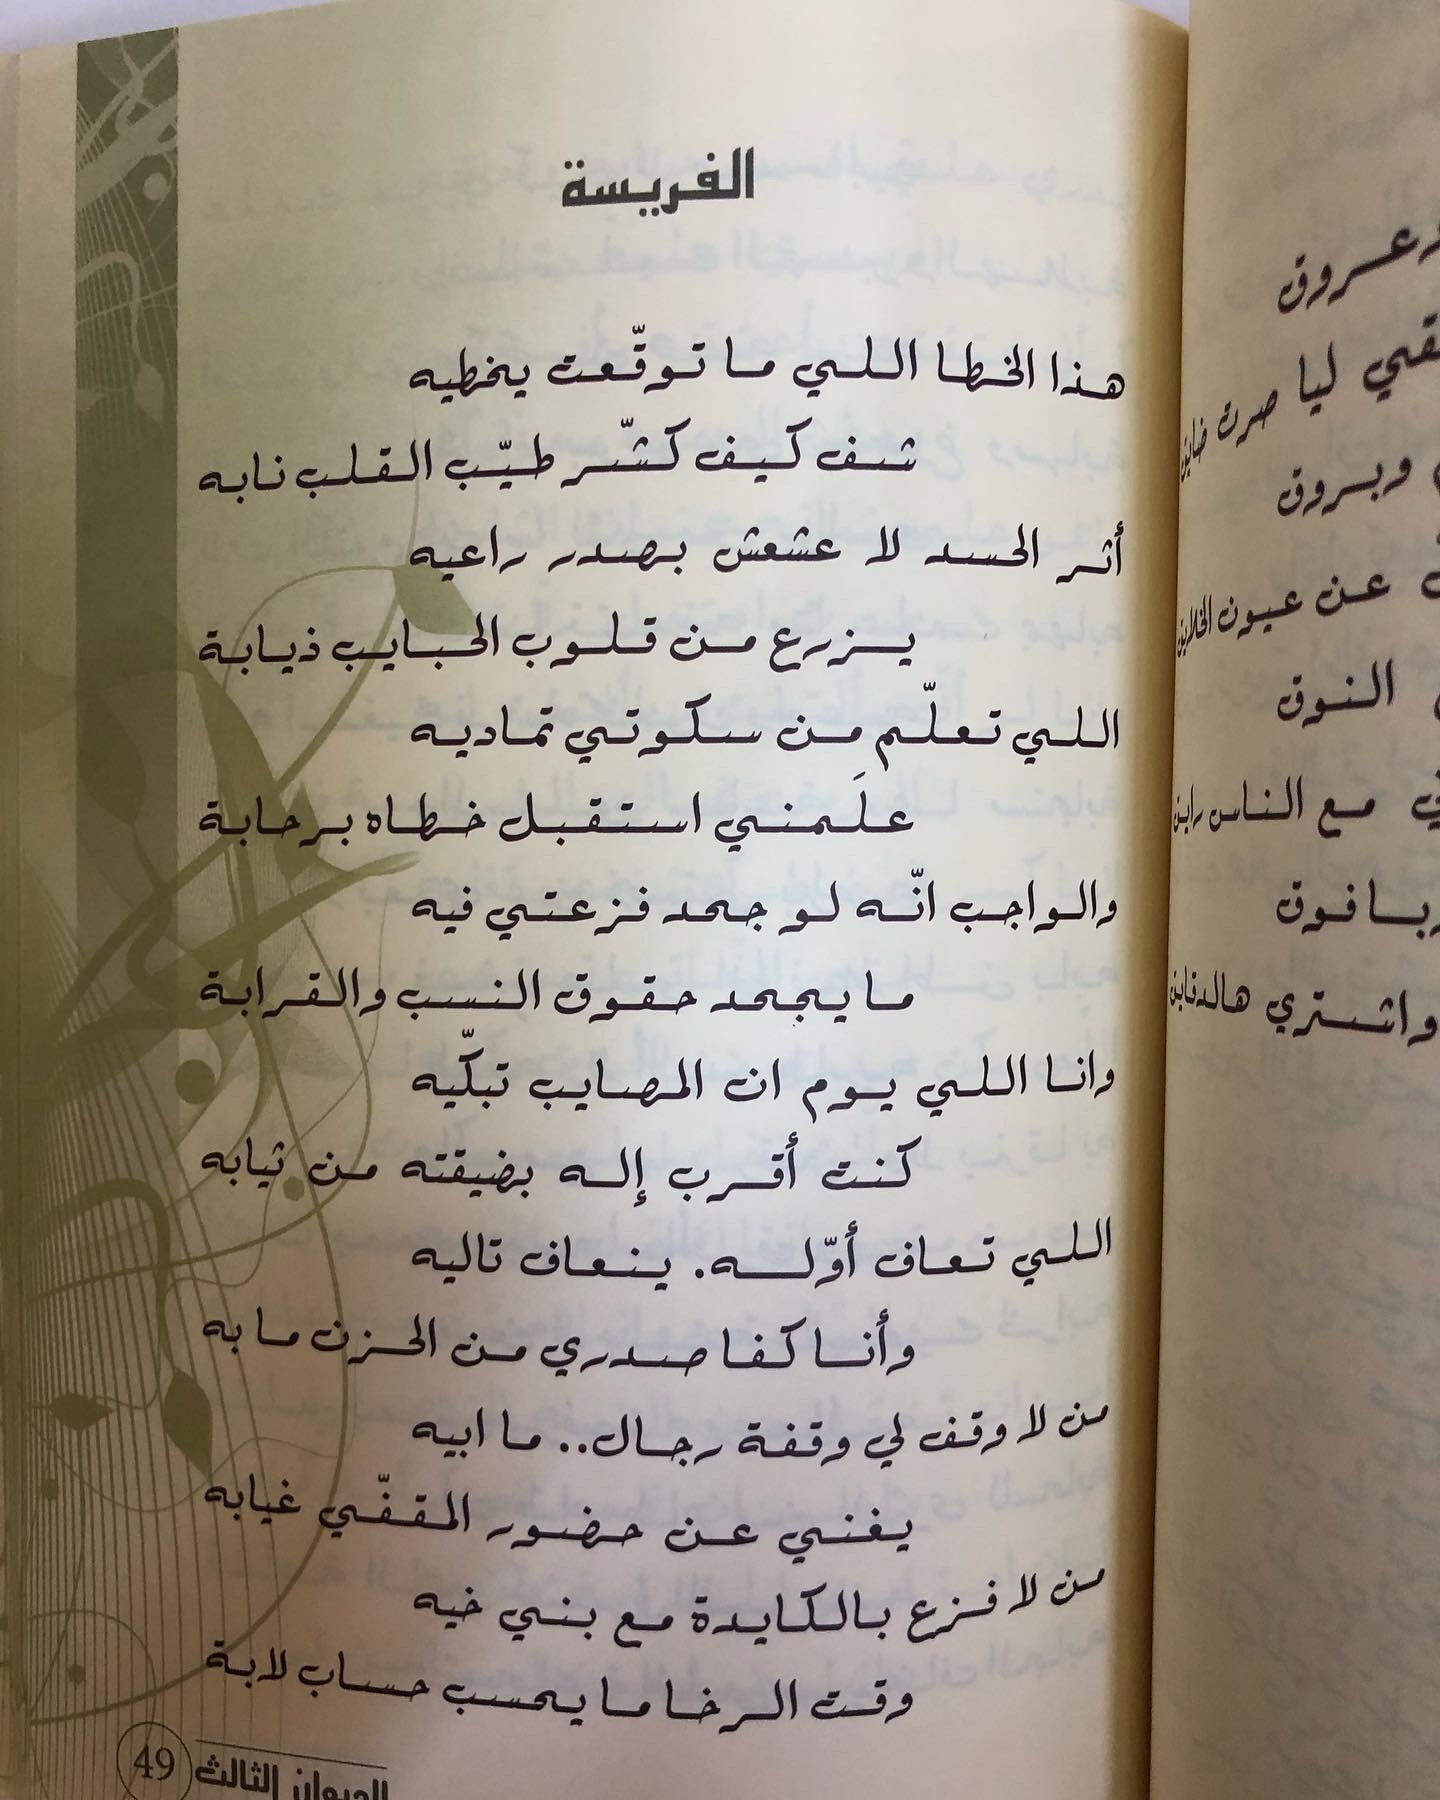 الفريسة
هذا الخطا اللي ما توقّعت يخطيه
شف كيف كشّر طيّب القلب نابه
أثر الحسد لا عشعش بصدر راعيه
يزرع من قلوب الحبايب ذيابة
اللي تعلّم من سكوتي تماديه
علَمني استقبل خطاه برحابة
والواجب انّه لو جحد فزعتي فيه
ما يجحد حقوق النسب والقرابة
وانا اللي يوم ان المصايب تبكّيه
كنت أقرب إله بضيقته من ثيابه
اللي تعاف أوّله. ينعاف تاليه
وأنا كفا صدري من الحزن ما به
من لا وقف لي وقفة رجال.. ما ابيه
يغني عن حضور المقفّي غيابه
من لا فزع بالكايدة مع بني خيه
وقت الرخا ما يحسب حساب لابة
الديوان الثالث 49
عروق
ليا صرت ضايق
وبروق
عن عيون الخلايق
النوق
مع الناس رايق
واشتري هالدقايق